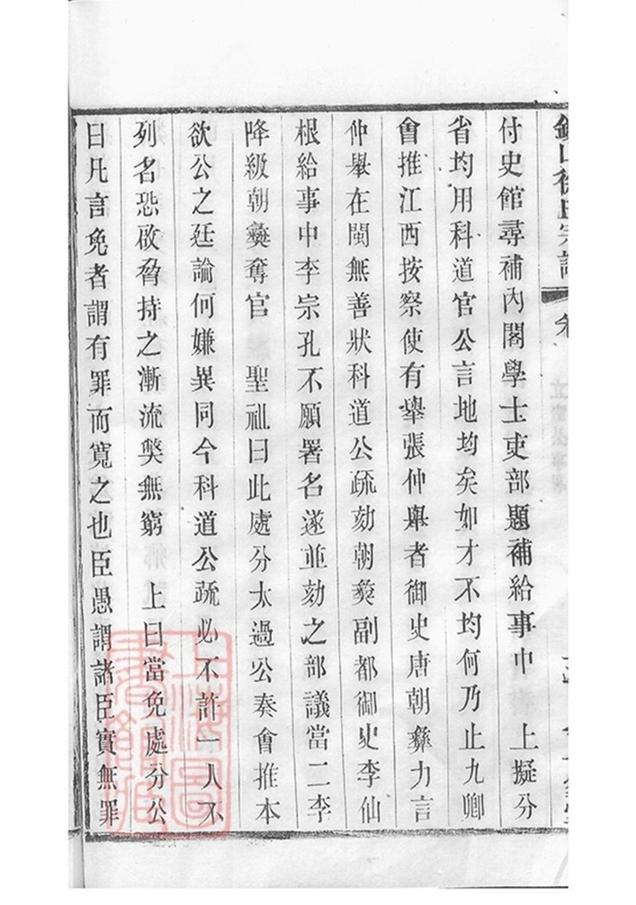 徐氏宗譜
付史館尋補內閣學士吏部題補給事中　上擬分
省均用科道官公言地均矣如才不均何乃止九卿
會推江西按察使有舉張仲舉者御史唐朝彝力言
仲舉在閩無善狀科道公疏劾朝彝副都御史李仙
根給事中李宗孔不願署名遂並劾之部議當二李
降級朝彝奪官　聖祖曰此處分太過公奏會推本
欲公之廷論何嫌異同今科道公疏必不許一人不
列名恐啟脅持之漸流獘無窮　上曰當免處分公
曰凡言免者謂有罪而寬之也臣愚謂諸臣實無罪